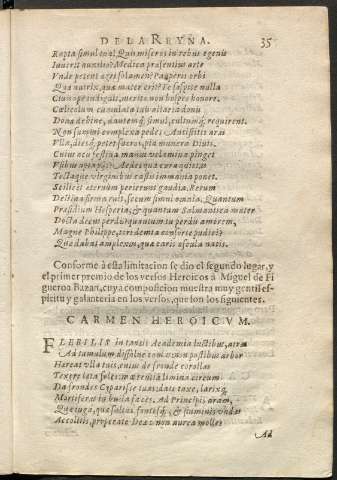 DE LA REYNA. 35
Rapta simul one! Quis miseros in rebus egenis
Iuuerit auxilio? Medica præsentius arte
Vnde petent ægri solamen? Pauperis orbi
Quæ nutrix, quæ mater erit? Te sospite nulla
ope indiguit, merito non
cumulata donis
Dona dedere, simul, requirent.
Non complexa pede: arai
Vlla, diesq; potest, munera Diuis.
Cuius festina manu pinget
Aedesque
Tectaque virginibus castis immania ponet.
Scilicet æternum perierunt gaudia. Rerum
Dectina ruit, secum simul omnia. Quantum
Præsidium Hesperiæ, & quantum Salmantica mater
Docta decus perdit quantum tu perdis amorem,
Magne Philippe, tori demta consorte pudici?
Quæ dabit amplexus, quæ caris oscula natis.
Conforme à esta limitacion se dio el segundo lugar, y
el primer premio de los versos Heroicos à Miguel de Fi
gueroa Bazan, cuya composicion muestra muy gentil es-
piritu y galanteria en los versos, que son los siguientes.
CARMEN HEROICVM.
FLEBILIS in tantis Academia luctibus, atræ
Ad tumulum dissolue comas: non postibus arbor
Hæreat vlla tuis, enius de fronde corollas
Texere læta soles:
Da frondes Cyparisse tuas, date taxe, larixq;
Mortiferas in busta faces. Ad Principis aram,
Quæ iuga, quæ saltus, fontesq;, & fluminis vndas
Accolitis, properate Deæ: non aurea molles
Ad